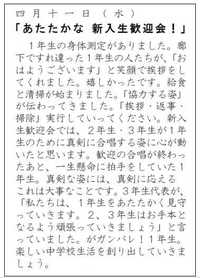 四月十一日（水）
「あたたかな 新入生歓迎会！」
　１年生の身体測定がありました。廊
下ですれ違った１年生の人たちが、「お
はようございます」と笑顔で挨拶をし
てくれました。嬉しかったです。給食
と清掃が始まりました。「協力する姿」
が伝わってきました。「挨拶・返事・
掃除」実行していってください。新入
生歓迎会では、２年生・３年生が１年
生のために真剣に合唱する姿に心が動
いたと思います。歓迎の合唱が終わっ
たあと、一生懸命に拍手をしていた１
年生。真剣な姿には、真剣に応える
これは大事なことです。３年生代表が、
「私たちは、１年生をあたたかく見守
っていきます。２、３年生はお手本と
なるよう頑張っていきましょう」と言
っていました。がガンバレ！１年生。
楽しい中学校生活を創り出していきま
しょう。